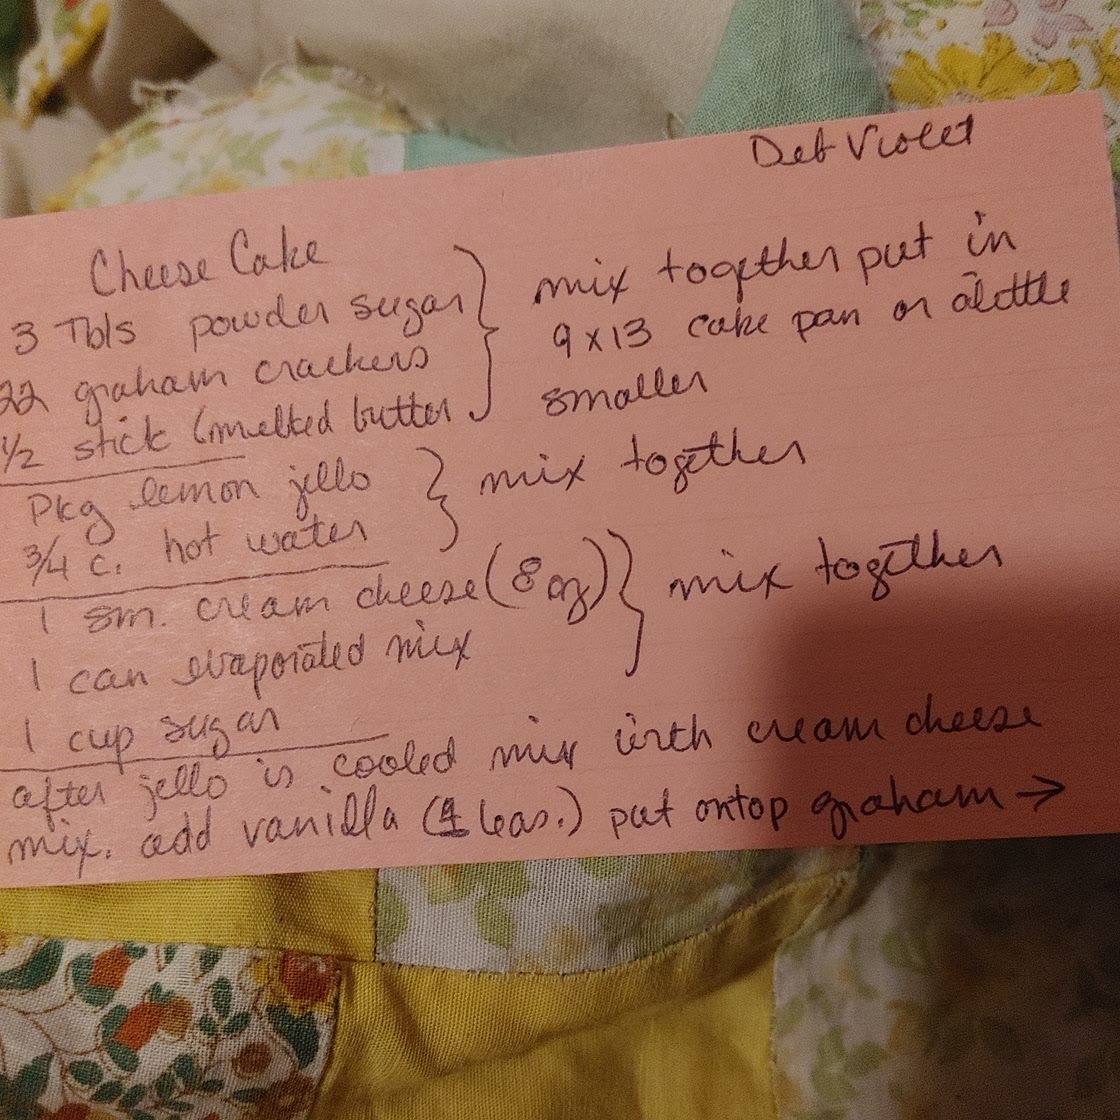 Deb Violet
Cheese Cake
3 Tbls powder sugar } mix together put in
22 graham crackers 9x13 cake pan or alittle
1/2 stick (melted butter smaller
Pkg lemon jello } mix together
3/4 c. hot water
1 sm. cream cheese (8 oz) } mix together
1 can evaporated mix
1 cup sugar
after jello is cooled mix with cream cheese
mix. add vanilla (1 teas.) put ontop graham →